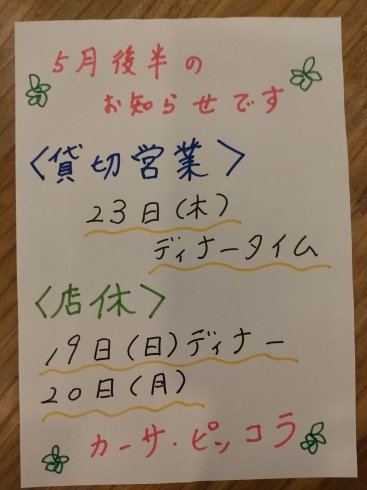 5月後半の
お知らせです
〈貸切営業〉
23日(木)
ディナータイム
〈店休〉
19日(日)ディナー
20日(月)
カーサ・ピッコラ